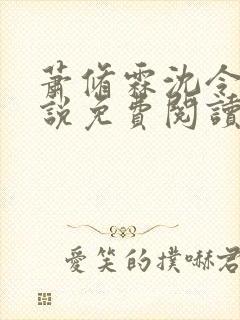 蕭脩霖沈令
說免費閱讀
愛笑的撲嚇君